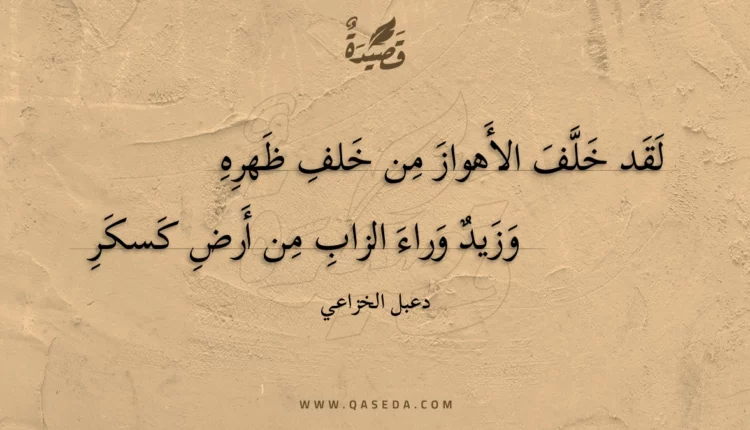 قَصِيْدَةٌ
لَقَد خَلَّفَ الأَهوازَ مِن خَلفِ ظَهرِهِ
وَزَيدٌ وَراءَ الزابِ مِن أَرضِ كَسكَرِ
دعبل الخزاعي
WWW.QASEDA.COM